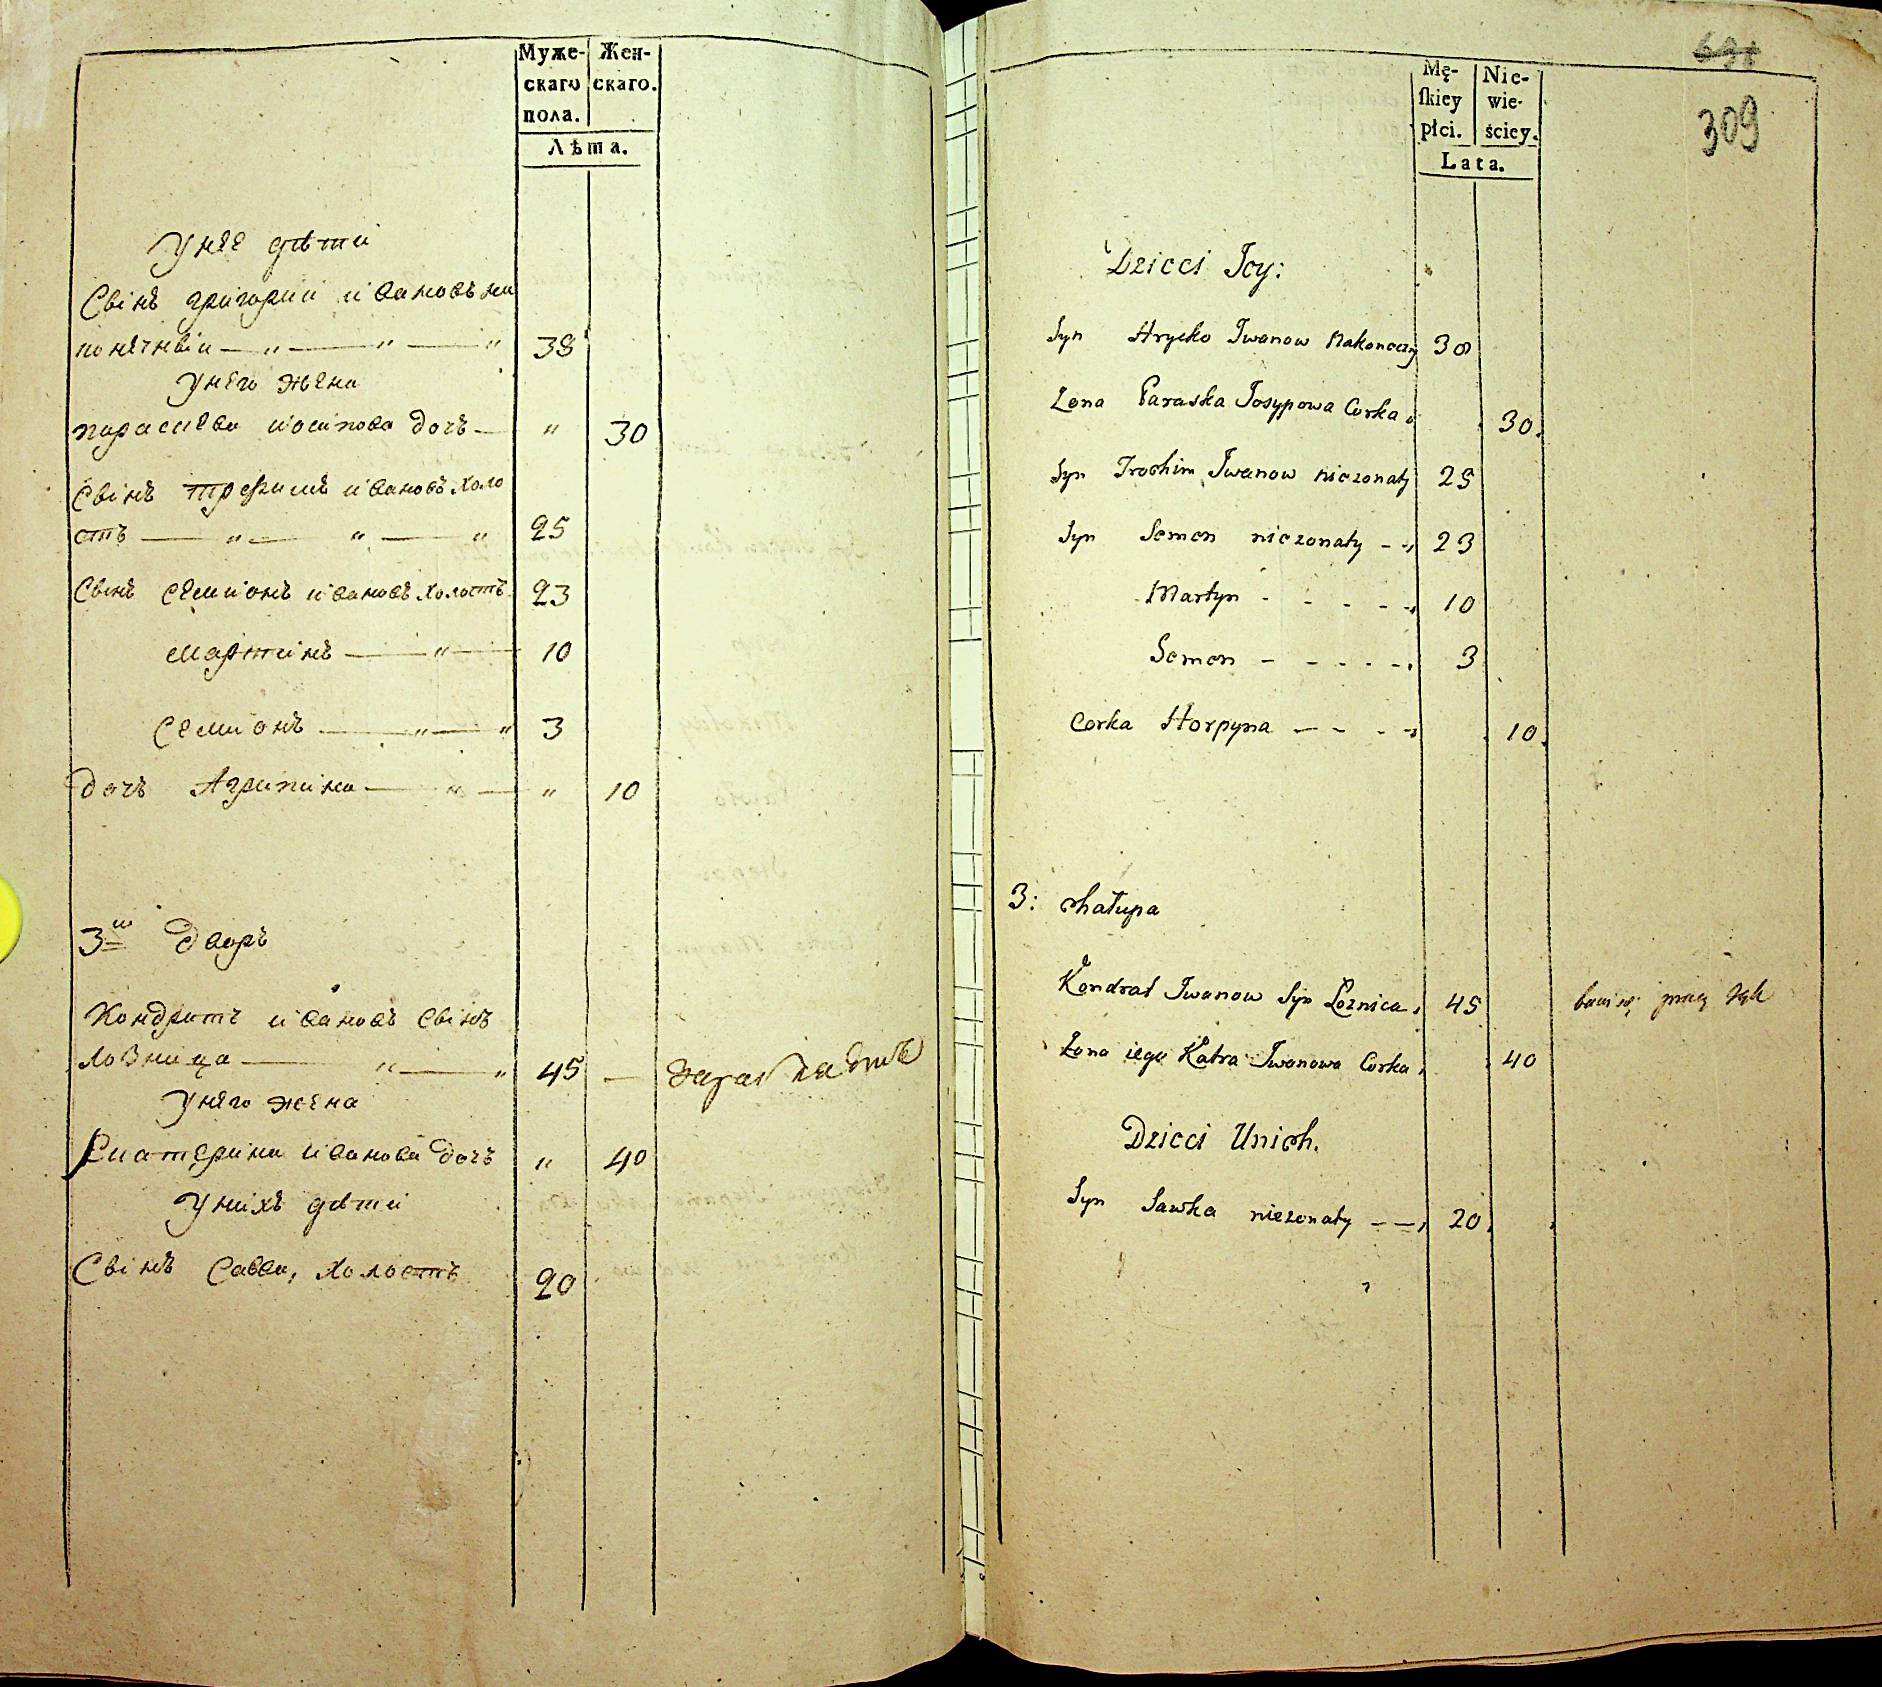 Муже-
скаго
пола.
Жен-
скаго.
Лѣта.
У нее дѣти
Свінъ григорий ивановъ на
конечній — „ — „ — „ 38
У него жена
параскева иосипова дочь — „ 30
Свінъ трофимъ ивановъ холо
стъ — „ — „ — „ 25
Свінъ семионъ ивановъ холостъ 23
мартинъ — „ — 10
семионъ — „ — „ 3
дочь Агрипина — „ — „ 10
3ій дворъ
Кондратъ ивановъ свінъ
лозница — „ — „ 45 —
У него жена
Екатерина иванова дочь „ 40
У нихъ дѣти
Свінъ Савва, холостъ 20
691
309
Mę-
ſkiey
płci.
Nie-
wie-
ściey.
Lata.
Dzieci Jey:
Syn Hryćko Iwanow Nakoneczny 38
Zona Paraska Josypowa Corka 30.
Syn Trochim Iwanow niezonaty 25
Syn Semen niezonaty - - 23
Martyn - - - - - 10
Semen - - - - - 3
Corka Horpyna - - - - 10.
3: chałupa
Kondrat Iwanow Syn Łoznica 45
Żona iego Katra Iwanowa Corka 40
Dzieci Unich.
Syn Sawka niezonaty - - 20